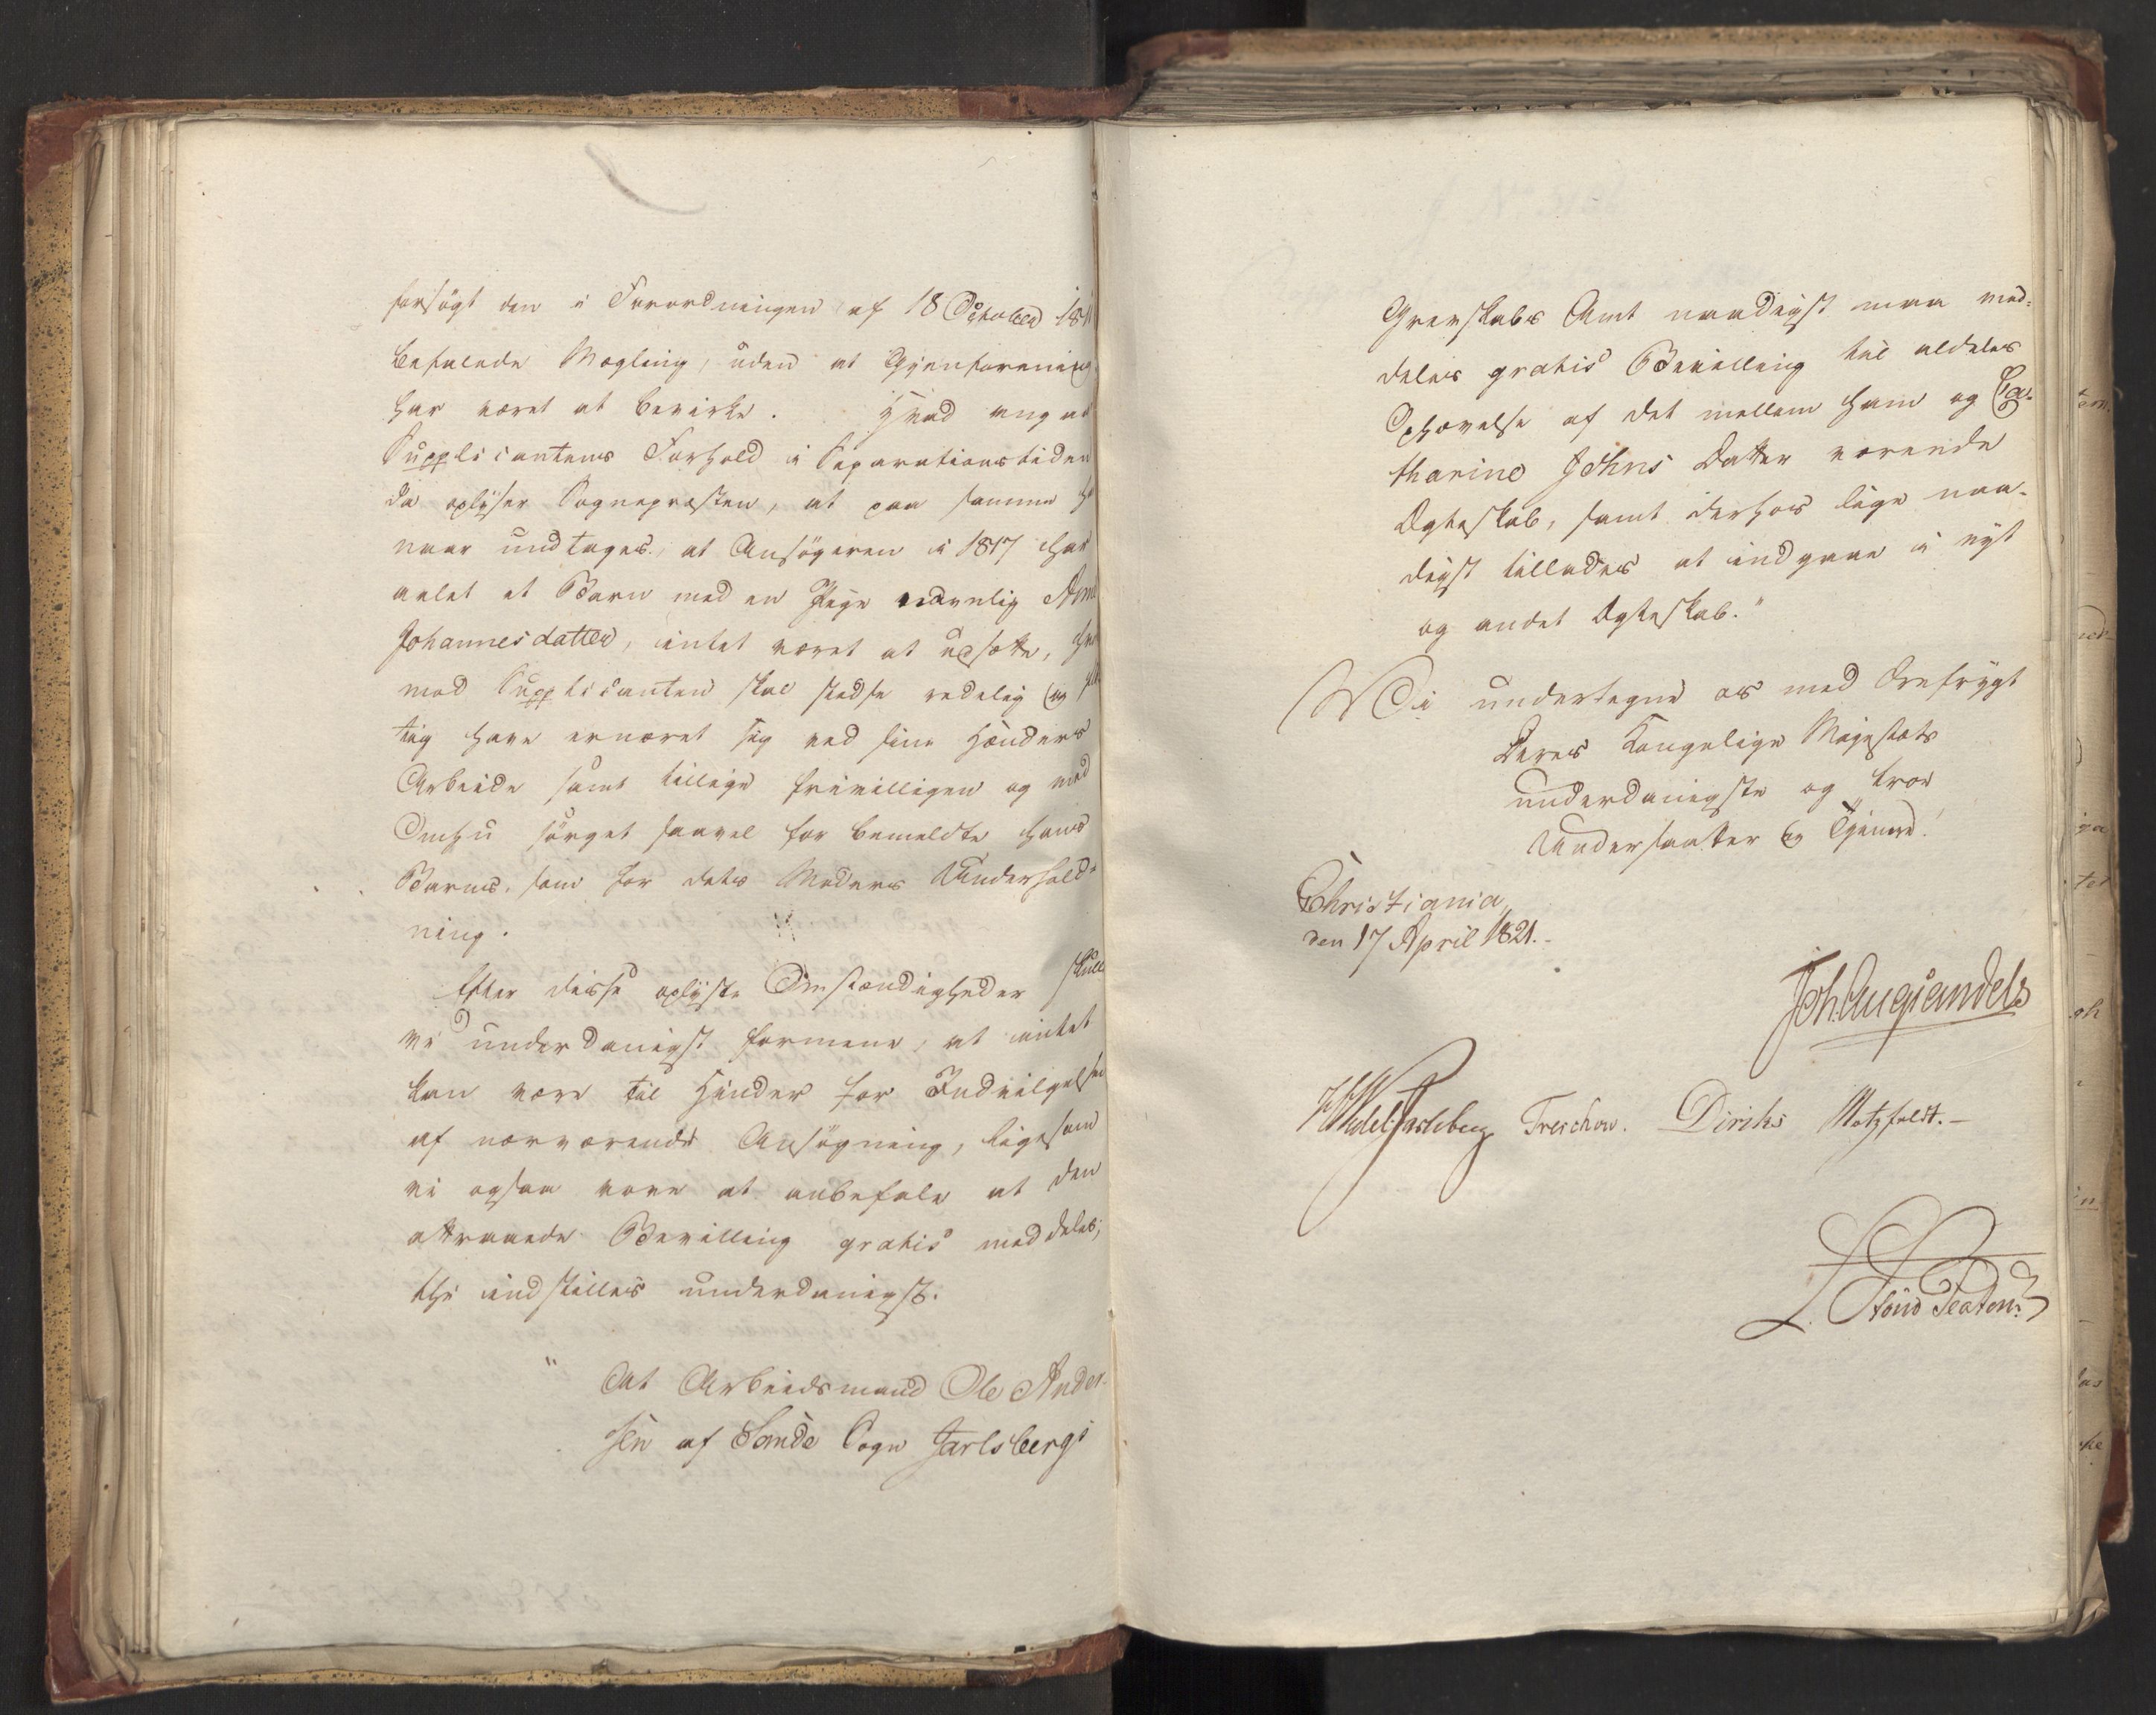 forsögt den i Forordningen af 18 October 1811
befalede Mægling, uden at Gjenforening
har været at bevirke. Hvad angaar
Supplicantens Forhold i Separationstiden
da oplyser Sognepræsten, at paa samme
naar undtages, at Ansögeren i 1817 har
avlet et Barn med en Pige navnlig Anne
Johannesdatter, intet været at udsætte,
mod Supplicanten skal stedse redelig og
tig have ernæret sig ved sine Hænders
Arbeide samt tillige frivilligen og med
Omhu sörget saavel for bemeldte hans
Barns, som for dets Moders Underhold-
ning.
Efter disse oplyste Omstændigheder skulle
vi underdanigst formene, at intet
kan være til Hinder for Indvilgelsen
af nærværende Ansögning, ligesom
vi ogsaa vove at anbefale at den
attraaede Bevilling gratis meddeles;
thi indstilles underdanigst:
"At Arbeidsmand Ole Ander-
sen af Sande Sogn Jarlsbergs
Grevskabs Amt naadigst maa med-
deles gratis Bevilling til aldeles
Ophævelse af det mellem ham og Ca-
tharine Johns Datter værende
Ægteskab, samt derhos lige naa-
digst tillades at indgaae i nyt
og andet Ægteskab."
Vi undertegne os med Ærefrygt
Deres Kongelige Majestæts
underdanigste og troe
Undersaatter og Tjenere!
Christiania,
den 17 April 1821.-
Joh. Aug. Sandels
Wedel Jarlsberg Treschow. Diriks Motzfeldt.-